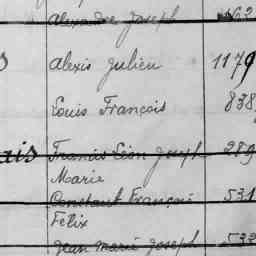 Alexandre Joseph 462
Alexis Julien 1179
Louis François 838
ais Francis Léon Joseph 289
Marie
Constant François 531
Félix
Jean Marie Joseph 532